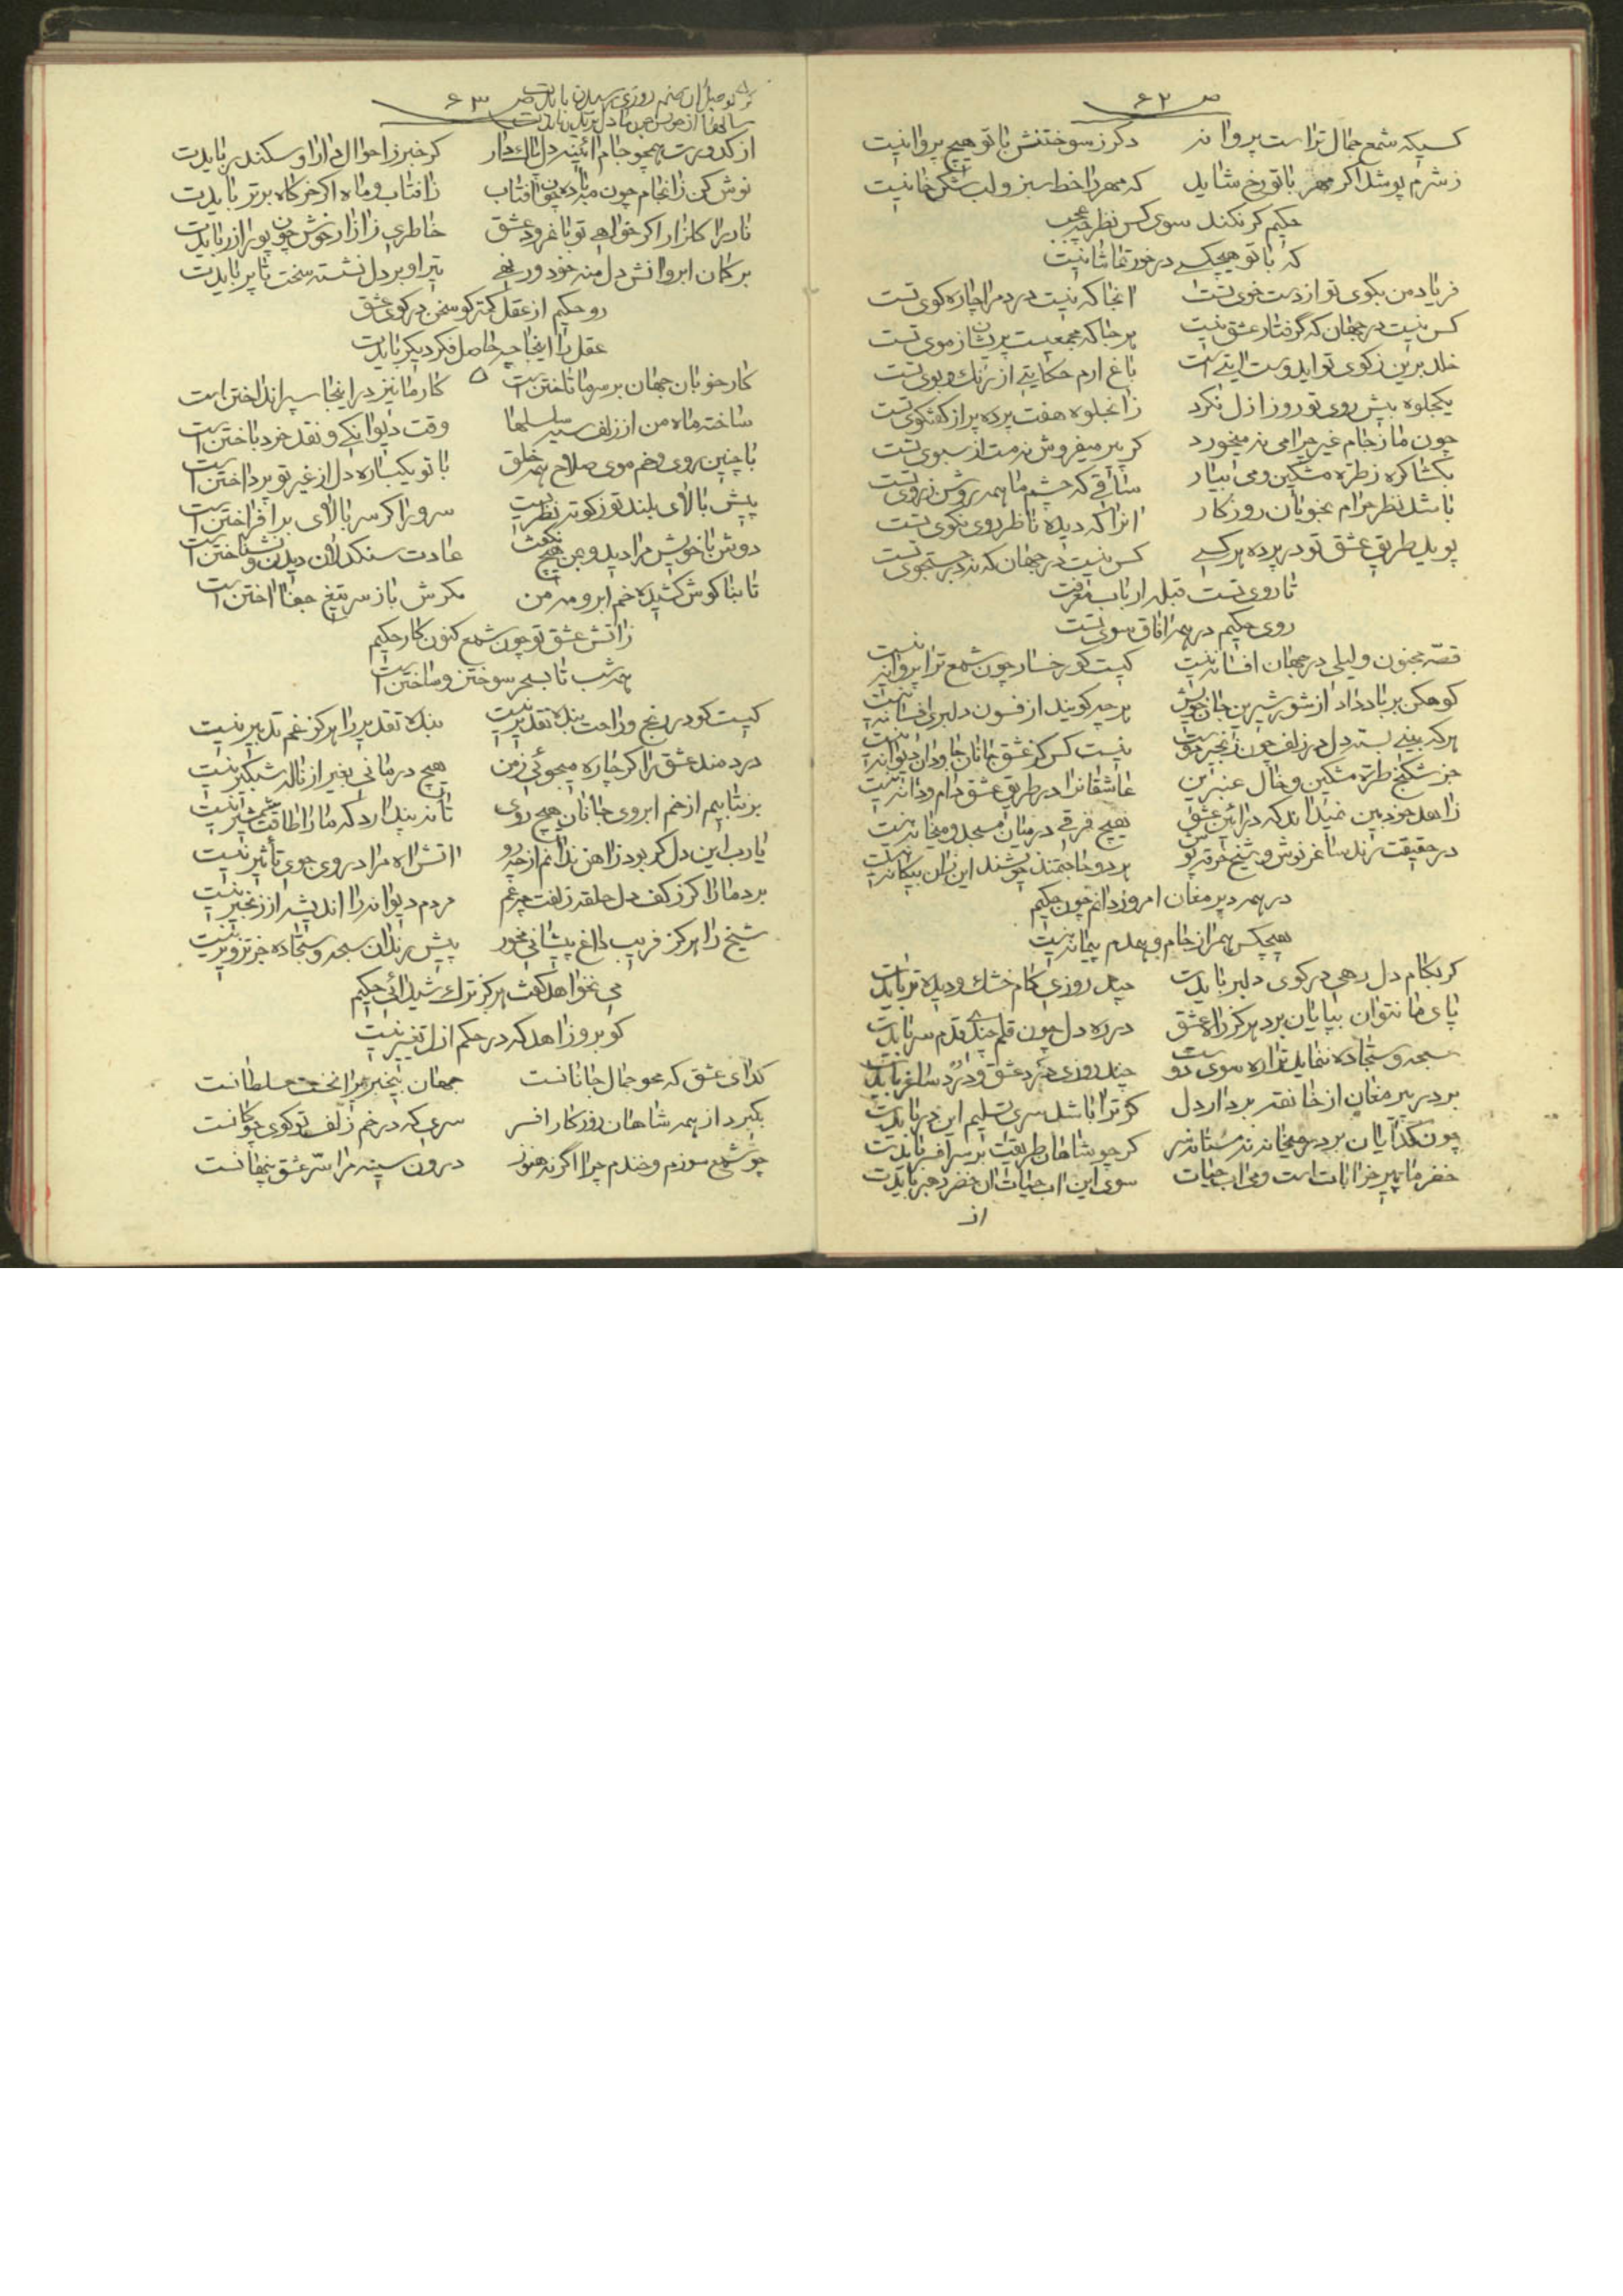 ص ۶۲
کسیکه شمع جمال تراست پروانه دگر ز سوختنش با تو هیچ پروا نیست
ز شرم پوشد اگر مهر با تو رخ شاید که مهر را خط سبز و لب شکرخا نیست
حکیم گر نکند سوی کس نظر چه عجب
که با تو هیچکسی درخور تماشا نیست
فریاد من بکوی تو از دست خوی تست انجا که نیست درد مرا چاره کوی تست
کس نیست در جهان که گرفتار عشق نیست هر جا که مجمعیست پریشان ز موی تست
خلد برین ز کوی تو ایدوست ایتی است باغ ارم حکایتی از رنک و بوی تست
یکجلوه بیش روی تو روز ازل نکرد زانجلوه هفت پرده پر از گفتگوی تست
چون ما ز جام غیر چرا می نمیخورد گر پیر میفروش نه مست از سبوی تست
بکشا گره ز طره مشکین و می بیار ساقی که چشم ما همه روشن ز روی تست
باشد نظر حرام بخوبان روزگار انرا که دیده ناظر روی نکوی تست
پوید طریق عشق تو در پرده هر کسی کس نیست در جهان که نه در جستجوی تست
تا روی تست قبله ارباب معرفت
روی حکیم در همه افاق سوی تست
قصّه مجنون و لیلی در جهان افسانه نیست کیست کو رخسار چون شمع ترا پروانه نیست
کوهکن بر باد داد از شور شیرین جان خویش هر چه گویند از فسون دلبری افسانه نیست
هر که بینی بسته دل در زلف چون زنجیر تست نیست کس کز عشق جانان جاودان دیوانه نیست
جز شکنج طره مشکین و خال عنبرین عاشقانرا در طریق عشق دام و دانه نیست
زاهد خودبین نمیداند که در ائین عشق هیچ فرقی در میان مسجد و میخانه نیست
در حقیقت رند ساغر نوش و شیخ خرقه پوش هر دو حاجتمند خویشند این ز ان بیگانه نیست
در همه دیر مغان امروز دانم چون حکیم
هیچکس همراز جام و همدم پیمانه نیست
گر بکام دل رهی در کوی دلبر بایدت چند روزی کام خشک و دیده تر بایدت
پای ما نتوان بپایان برد هرگز راه عشق در ره دل چون قلم چندی قدم سر بایدت
سبحه و سجّاده ننماید ترا ره سوی دوست چند روزی درد عشق و دُرد ساغر بایدت
بر در پیر مغان از خانقه بردار دل گر ترا باشد سری تسلیم این در بایدت
چون گدایان بر در میخانه نه مستانه سر گر چو شاهان طریقت بر سر افسر بایدت
خضر ما پیر خرابات است و می اب حیات سوی این اب حیات ان خضر رهبر بایدت
از
ص ۶۳
از کدورت همچو جام ائینه دل پاک دار گر خبر ز احوال دارا و سکندر بایدت
نوش کن ز انجام چون مه باده چون افتاب ز افتاب و ماه اگر خرگاه برتر بایدت
نار را گلزار اگر خواهی تو با نمرود عشق خاطری ز ازار خویش چون پور ازر بایدت
بر کمان ابروانش دل منه خود ور نهی تیر او بر دل نشسته سخت تا پر بایدت
رو حکیم از عقل کمتر گو سخن در کوی عشق
عقل را اینجا چه حاصل فکر دیگر بایدت
کار خوبان جهان بر سر ما تاختن است کار ما نیز در اینجا سپر انداختن است
ساخته ماه من از زلف سیه سلسلها وقت دیوانگی و نقد خرد باختن است
با چنین روی و خم موی صلاح همه خلق با تو یکباره دل از غیر تو پرداختن است
پیش بالای بلند تو ز کوته نظریست سرو را گر سر بالای بر افراختن است
دوش با خویش مرا دید و بمن هیچ نگفت عادت سنگدلان دیدن و نشناختن است
تا بناگوش کشیده خم ابرو مه من مگرش باز سر تیغ جفا اختن است
ز اتش عشق تو چون شمع کنون کار حکیم
همه شب تا بسحر سوختن و ساختن است
کیست کو در رنج و راحت بنده تقدیر نیست بنده تقدیر را هرگز غم تدبیر نیست
دردمند عشق را گر چاره میجوئی ز من هیچ درمانی بغیر از ناله شبگیر نیست
بر نتابیم از خم ابروی جانان هیچ روی تا نه پندارد که ما را طاقت شمشیر نیست
یارب این دل گر بود ز اهن ندانم از چه رو اتش اه مرا در وی جوی تأثیر نیست
برد ما را گر ز کف دل حلقه زلفت چه غم مردم دیوانه را اندیشه از زنجیر نیست
شیخ را هرگز فریب داغ پیشانی مخور پیش رندان سبحه و سجّاده جز تزویر نیست
می نخواهد گفت هرگز ترک شیدائی حکیم
گو برو زاهد که در حکم ازل تغییر نیست
گدای عشق که محو جمال جانانست جهان بیخبر برا تخت سلطانست
بگیرد از همه شاهان روزگار افسر سری که در خم زلف تو گوی چوگانست
چو شمع سوزم و خندم چرا اگر نه هنوز درون سینه مرا سرّ عشق پنهانست